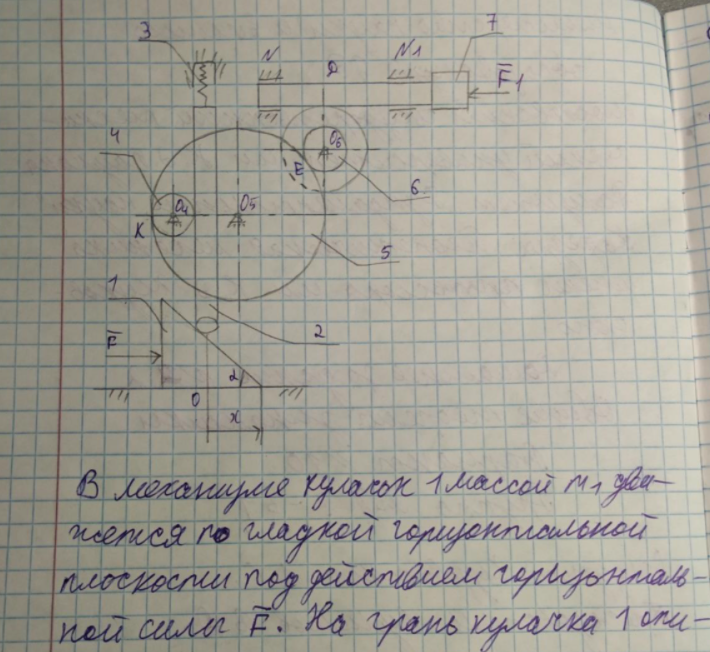 3
N
D
N1
7
F1
4
O6
E
6
O4
O5
K
5
1
2
F
α
O
x
В механизме кулачок 1 массой m1 дви-
жется по гладкой горизонтальной
плоскости под действием горизонталь-
ной силы F. На грань кулачка 1 опи-